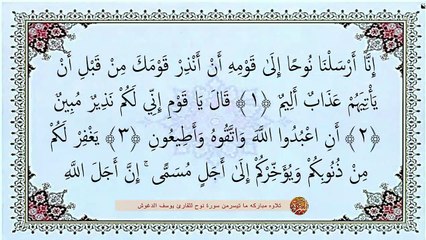 إِنَّا أَرْسَلْنَا نُوحًا إِلَى قَوْمِهِ أَنْ أَنْذِرْ قَوْمَكَ مِنْ قَبْلِ أَنْ
يَأْتِيَهُمْ عَذَابٌ أَلِيمٌ ﴿١﴾ قَالَ يَا قَوْمِ إِنِّي لَكُمْ نَذِيرٌ مُبِينٌ
﴿٢﴾ أَنِ اعْبُدُوا اللَّهَ وَاتَّقُوهُ وَأَطِيعُونِ ﴿٣﴾ يَغْفِرْ لَكُمْ
مِنْ ذُنُوبِكُمْ وَيُؤَخِّرْكُمْ إِلَى أَجَلٍ مُسَمًّى ۚ إِنَّ أَجَلَ اللَّهِ
تلاوه مباركه ما تيسرمن سورة نوح للقارئ يوسف الدغوش